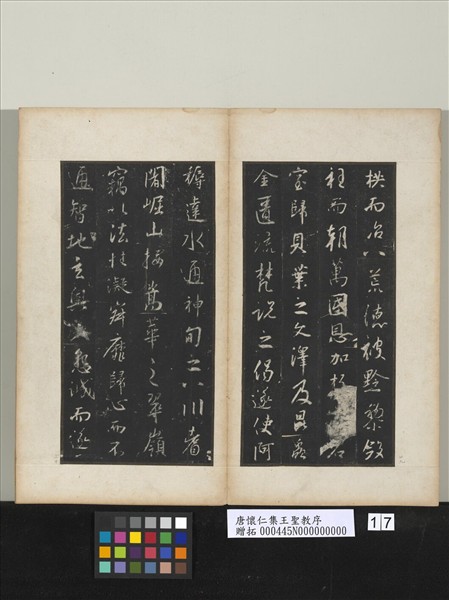 拱而治八荒德被黔黎斂
衽而朝萬國恩加朽石
室歸貝葉之文澤及昆蟲
金匱流梵說之偈遂使阿
耨達水通神甸之八川耆
闍崛山接嵩華之翠嶺
竊以法性凝寂靡歸心而不
通智地玄奧懇誠而遂
唐懷仁集王聖教序
贈拓 000445N000000000
17